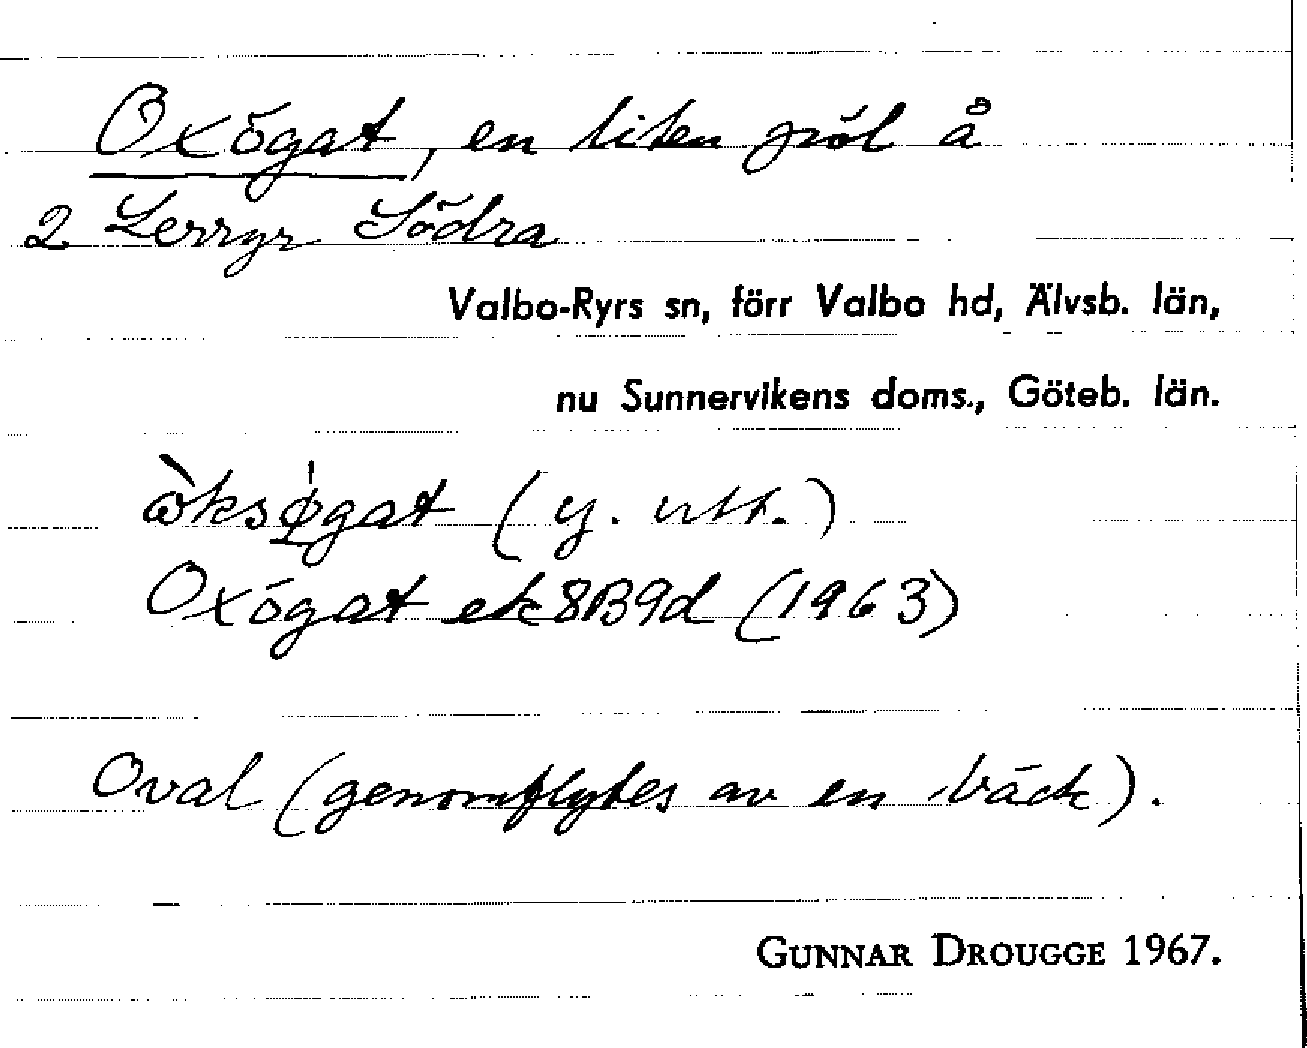 Oxögat, en liten göl å
2 Lerryr Södra
Valbo-Ryrs sn, förr Valbo hd, Älvsb. län,
nu Sunnervikens doms., Göteb. län.
ὼksø̍gat (ej. utt.)
Oxögat ek 8B9d (1963)
Oval (genomflytes av en bäck).
GUNNAR DROUGGE 1967.